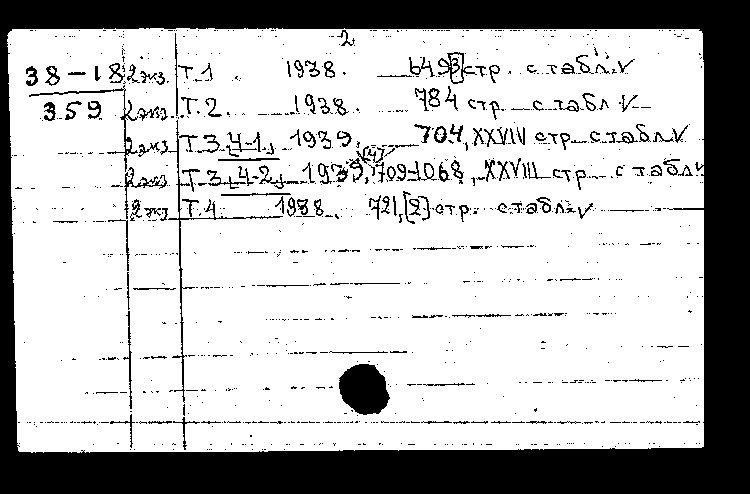 2
38-18 2экз. Т.1 1938. 649[3] стр. с табл. V
359 2экз. Т.2. 1938. 784 стр. с табл V
2экз Т.3 [ч-1.] 1939, 704, XXVIV стр с табл. V
2экз. Т.3 [ч-2.] 1939, 709-1068, XXVIII стр. с табл V
2экз Т.4 1938. 721, [2] стр. с табл. V